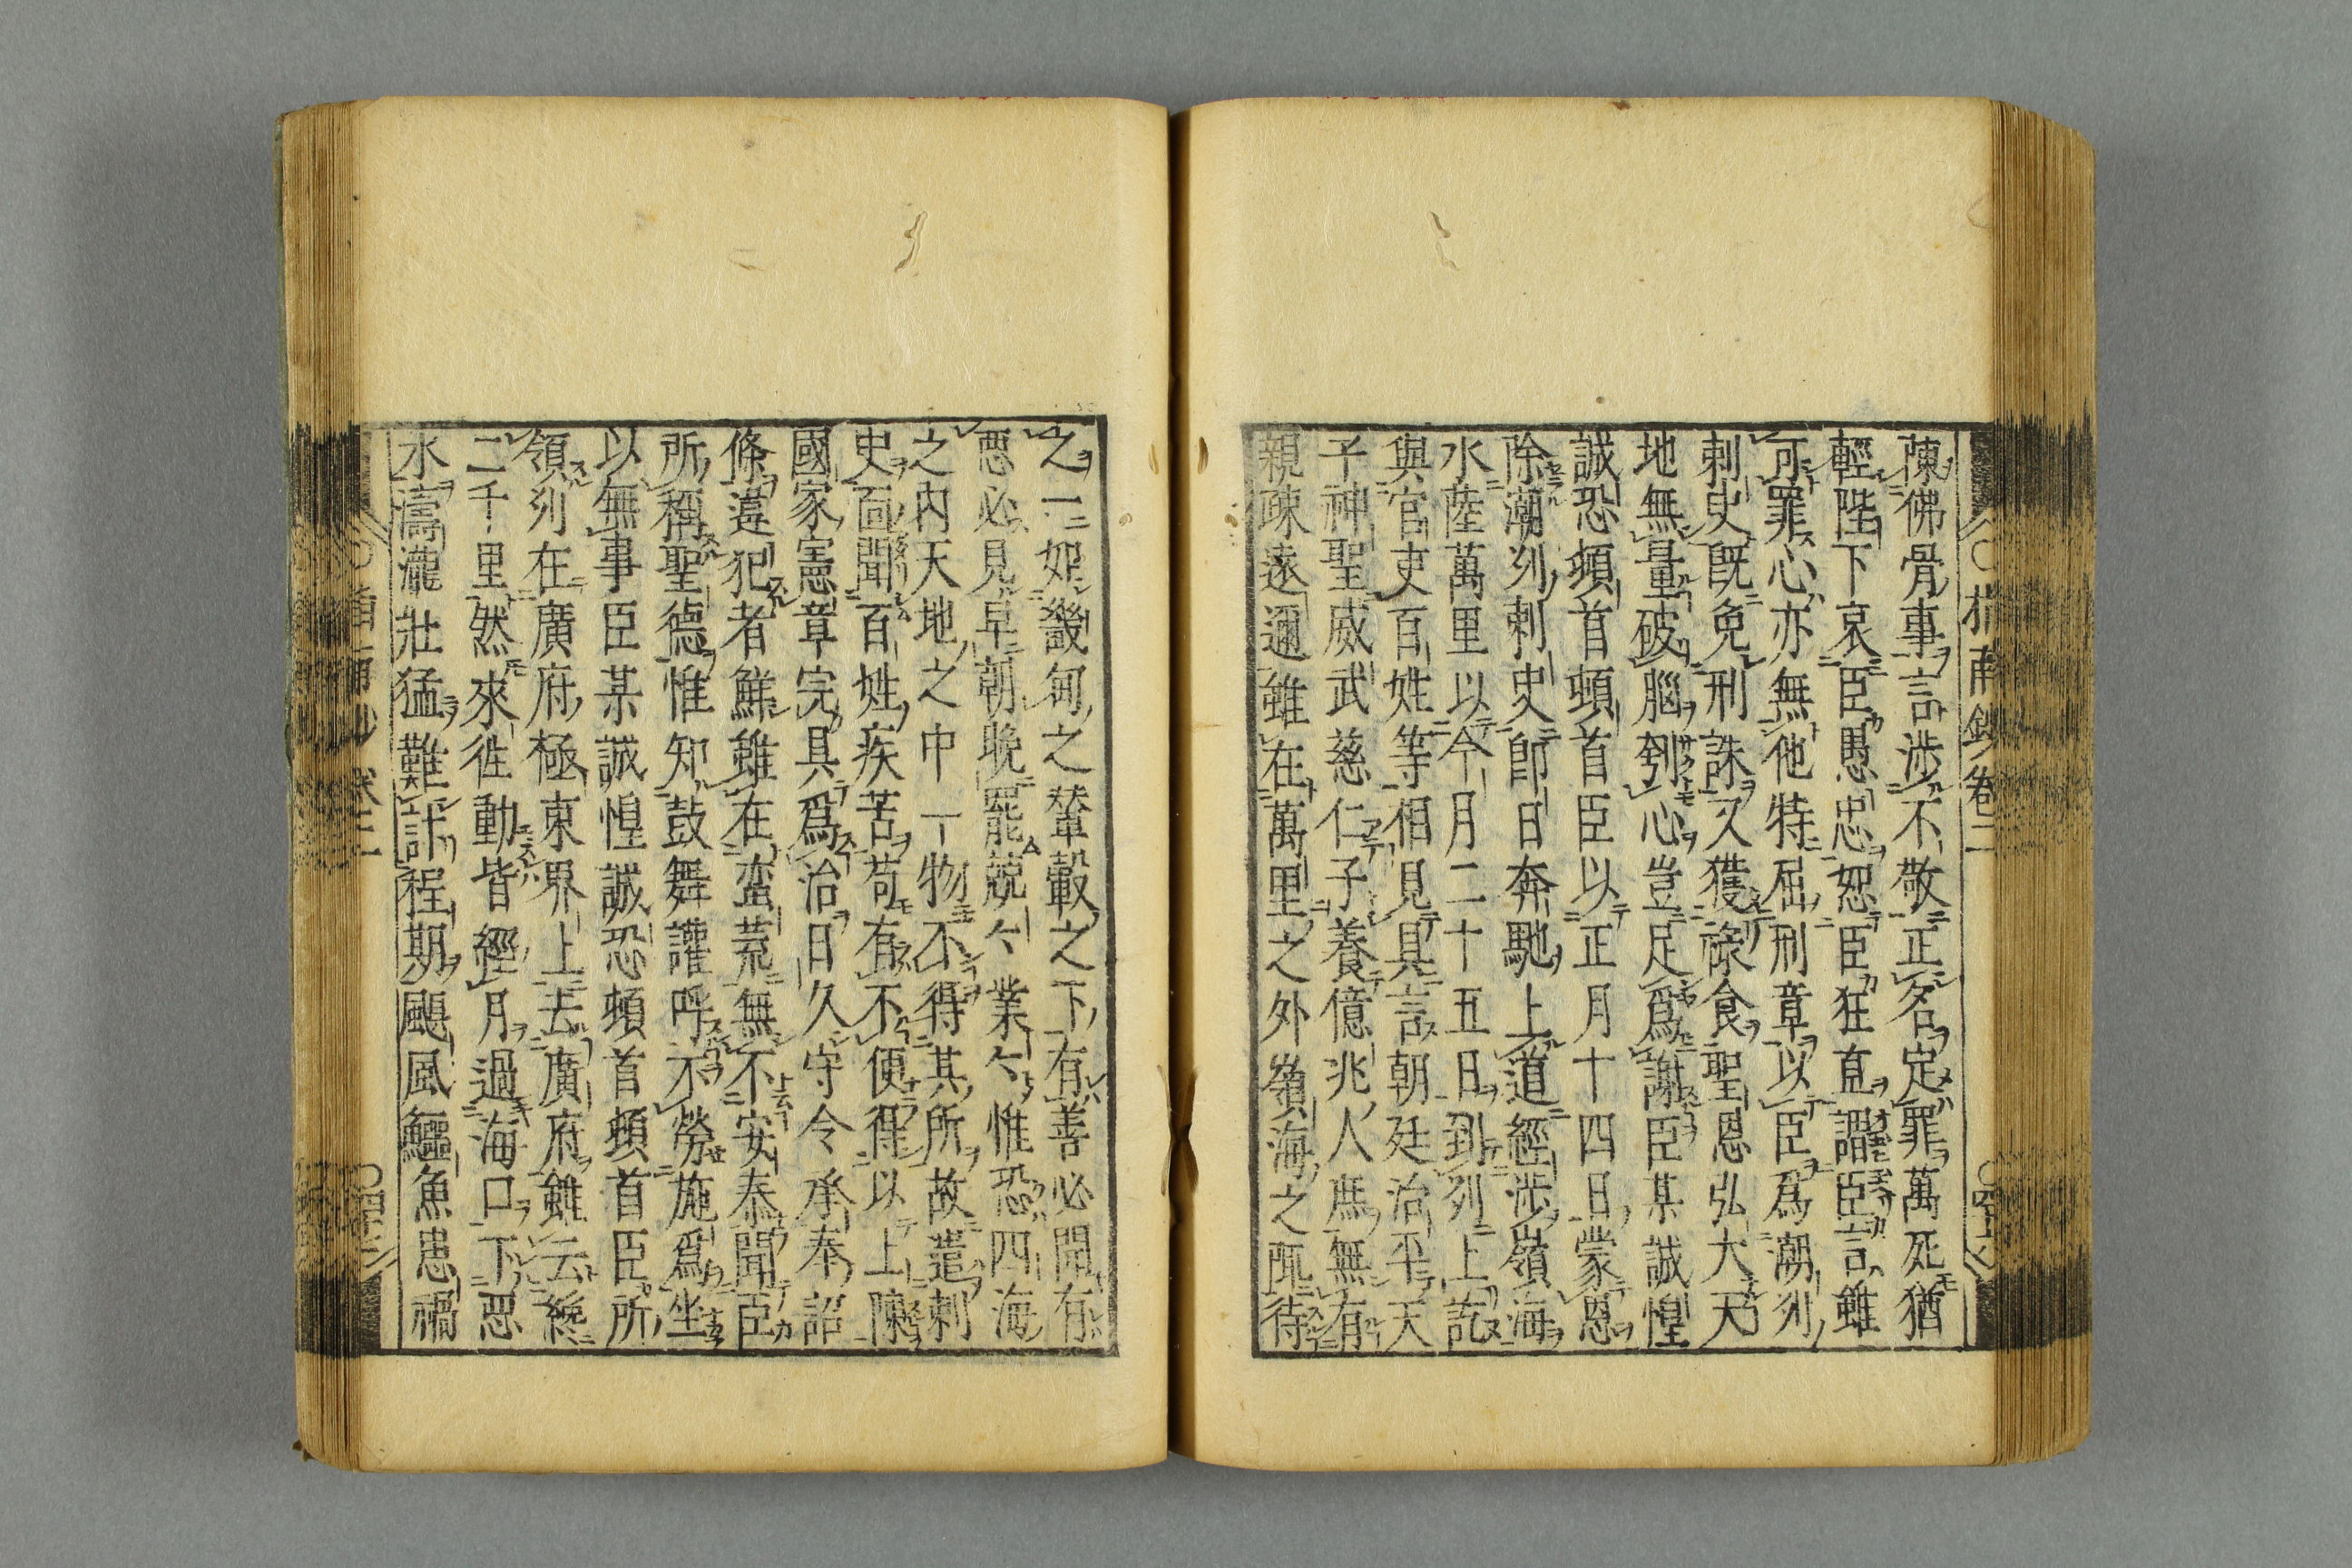 陳佛骨事言涉不敬正名定罪萬死猶
輕陛下哀臣愚忠恕臣狂直謂臣言雖
可罪心亦無他特屈刑章以臣爲潮刕
刺史既免刑誅又獲祿食聖恩弘大天
地無量破腦刳心豈足爲謝臣某誠惶
誠恐頓首頓首臣以正月十四日蒙恩
除潮刕刺史即日奔馳上道經涉嶺海
水陸萬里以今月二十五日到刕上訖
與官吏百姓等相見具言朝廷治平天
子神聖威武慈仁子養億兆人庶無有
親疎遠邇雖在萬里之外嶺海之陬待
之一如畿甸之輦轂之下有善必聞有
悪必見早朝晩罷兢〻業〻惟恐四海
之内天地之中一物不得其所故遣刺
史面聞百姓疾苦苟有不便得以上陳
國家憲章完具爲治日久守令承奉詔
條違犯者鮮雖在蛮荒無不安泰聞臣
所稱聖德惟知鼓舞讙呼不勞施爲坐
以無事臣某誠惶誠恐頓首頓首臣所
領刕在廣府極東界上去廣府雖云纔
二千里然來徃動皆經月過海口下悪
水濤瀧壯猛難計程期颶風鱷魚患禍
指南鈔卷二